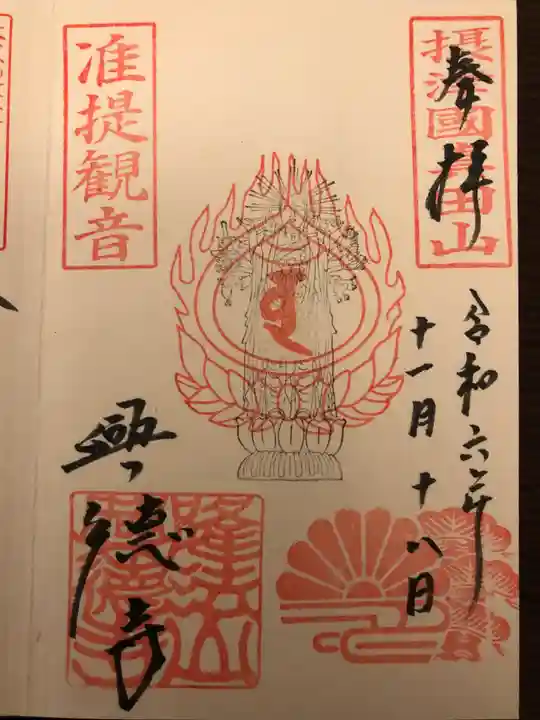 摂津國真田山
奉拝
令和六年
十一月十八日
准提観音
興徳寺